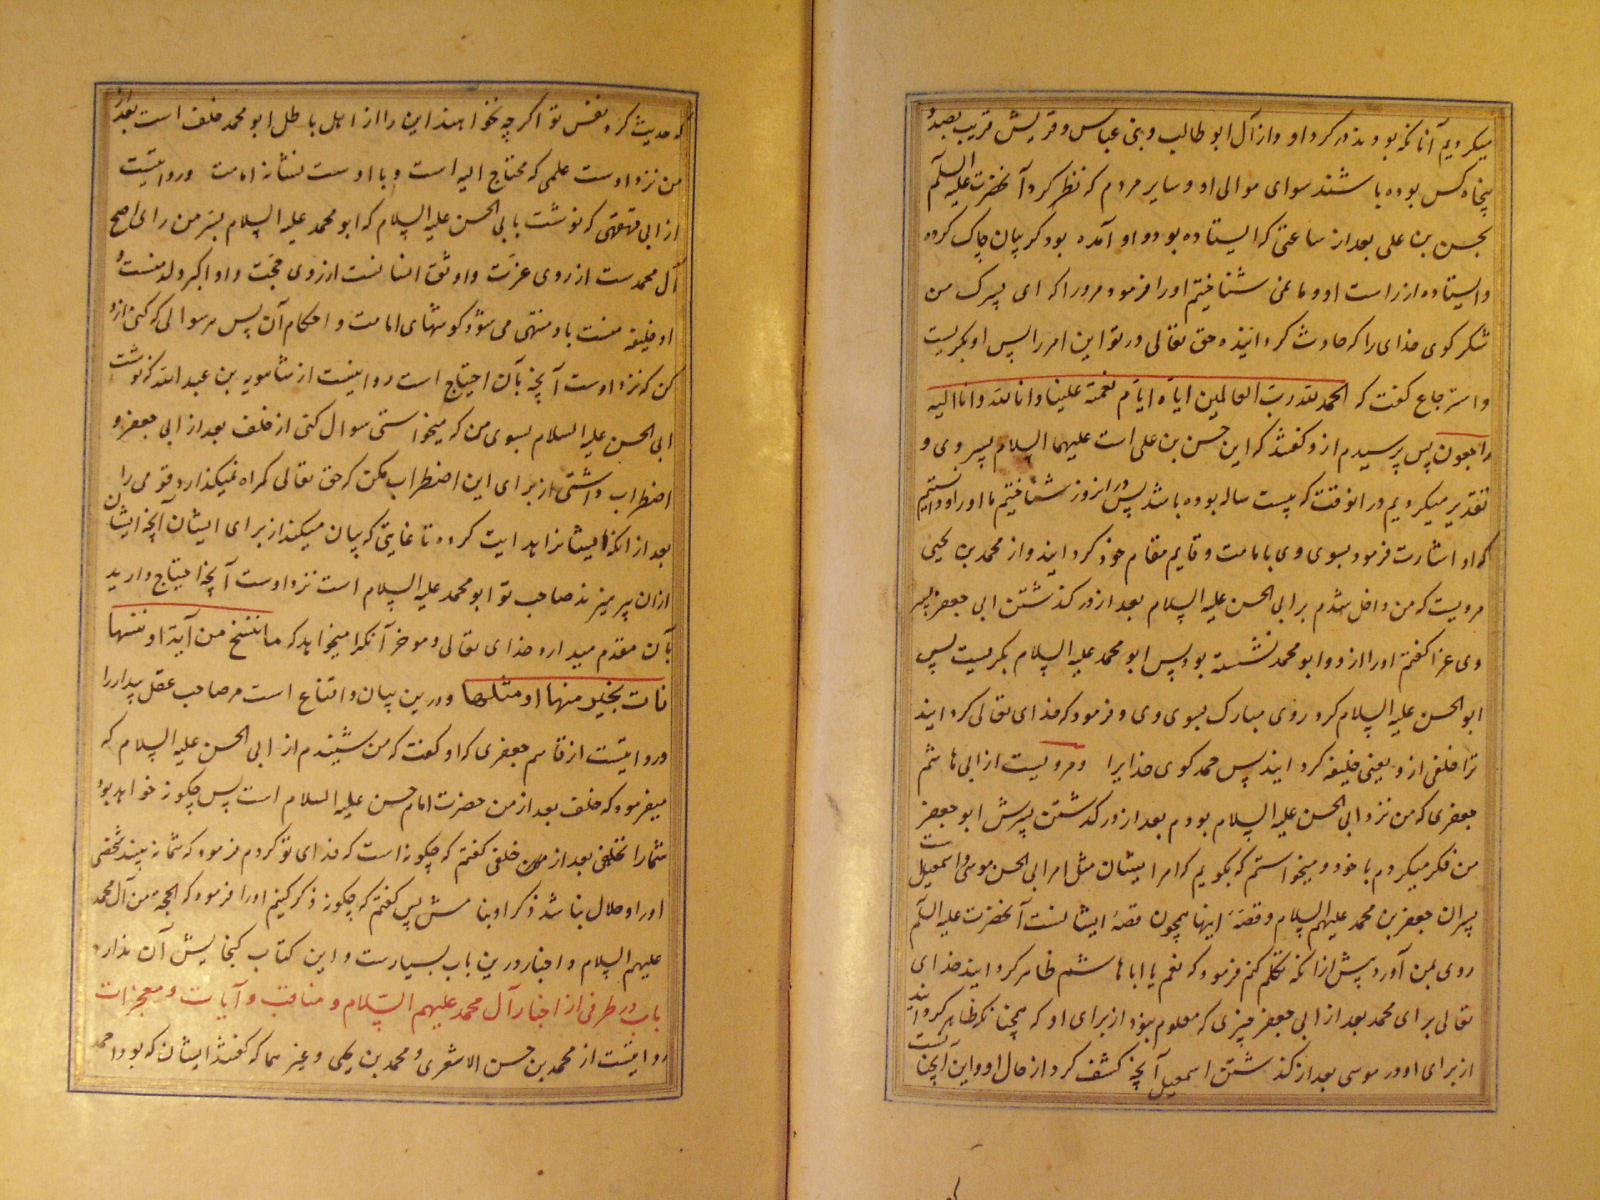 میکردیم آنانکه بودند در کرد او و از آل ابو طالب و بنی عباس و قریش قریب بصد و
پنجاه کس بوده باشند سوای موالی او و سایر مردم که نظر کرد آنحضرت علیه السلم
بحسن بن علی بعد از ساعتی که ایستاده بود و او آمده بود کریبان چاک کرده
و ایستاده از راست او و ما نمی شناختیم او را فرمود مر او را که ای پسرک من
شکر کوی خدای را که حادث کردانیده حق تعالی در تو این امر را پس او بکریست
و استرجاع کفت که الحمد لله رب العالمین ایاه ایام نعمته علینا و انا لله و انا الیه
راجعون پس پرسیدم از و کفتند که این حسن بن علی است علیهما السلام پسر وی و
تقدیر میکردیم در انوقت که بیست ساله بوده باشد پس در انروز شناختیم ما او را و دانستیم
که او اشارت فرمود بسوی وی بامامت و قایم مقام خود کردانید و از محمد بن یحیی
مرویست که من داخل شدم بر ابی الحسن علیه السلام بعد از در کذشتن ابی جعفر پسر
وی عزا کفتم او را ازو و ابو محمد نشسته بود پس ابو محمد علیه السلام بکریست پس
ابو الحسن علیه السلام کرد روی مبارک بسوی وی و فرمود که خدای تعالی کردانید
ترا خلفی ازو یعنی خلیفه کردانید پس حمد کوی خدایرا و مرویست از ابی هاشم
جعفری که من نزد ابی الحسن علیه السلام بودم بعد از در کذشتن پسرش ابو جعفر
من فکر میکردم با خود و میخواستم که بکویم که امر ایشان مثل امر ابی الحسن موسی و اسمعیل است
پسران جعفر بن محمد علیهم السلام و قصهٔ اینها همچون قصهٔ ایشانست آنحضرت علیه السلم
روی بمن آورد پیش از انکه تکلم کنم فرمود که نعم یا ابا هاشم ظاهر کردانید خدای
تعالی برای محمد بعد از ابی جعفر چیزی که معلوم نبود از برای او که همچنانکه ظاهر کردانید
از برای او در موسی بعد از کذشتن اسمعیل آنچه کشف کرد از حال او و این آنچنانست
که حدیث کرد نفس تو اکرچه نخواهند این را از اهل باطل ابو محمد خلف است بعد از
من نزد اوست علمی که محتاج الیه است و با اوست نشانهٔ امامت و روایتست
از ابی که نوشت بابی الحسن علیه السلام که ابو محمد علیه السلام پسر من رای اصح
آل محمدست از روی عزت و اوثق انسانست از روی محبت و او اکبر ولد منست و
او خلیفه منست باو منتهی می شود کوشهای امامت و احکام آن پس هر سوالی که کنی ازو
کن که نزد اوست آنچه بآن احتیاج است روایتست از شاهویه بن عبد الله که نوشت
ابی الحسن علیه السلام بسوی من که میخواستی سوال کنی از خلف بعد از ابی جعفر و
اضطراب داشتی از برای این اضطراب مکن که حق تعالی کمراه نمیکذارد قومی را
بعد از انکه ایشانرا هدایت کرده تا غایتی که بیان میکند از برای ایشان آنچه ایشان
ازان پرهیزند صاحب تو ابو محمد علیه السلام است نزد اوست آنچه احتیاج دارید
بآن مقدم میدارد خدای تعالی و موخر آنکه را میخواهد که ما ننسخ من آیة او ننسها
نات بخیر منها او مثلها و درین بیان و اقناع است مر صاحب عقل بیدار را
و روایتست از قاسم جعفری که او کفت که من شنیدم از ابی الحسن علیه السلام که
میفرمود که خلف بعد از من حضرت امام حسن علیه السلام است پس چکونه خواهد بود
شما را تخلفی بعد از من خلفی کفتم که چکونه است که فدای تو کردم فرمود که شما نه بینید شخص
او را و حلال نباشد ذکر او بنامش پس کفتم که چکونه ذکر کنیم او را فرمود که الحجة من آل محمد
علیهم السلام و اخبار درین باب بسیارست و این کتاب کنجایش آن ندارد
باب در طرفی از اخبار آل محمد علیهم السلام و مناقب و آیات و معجزات
روایتست از محمد بن حسن الاشعری و محمد بن یحیی و غیر هما که کفتند ایشان که بود احمد